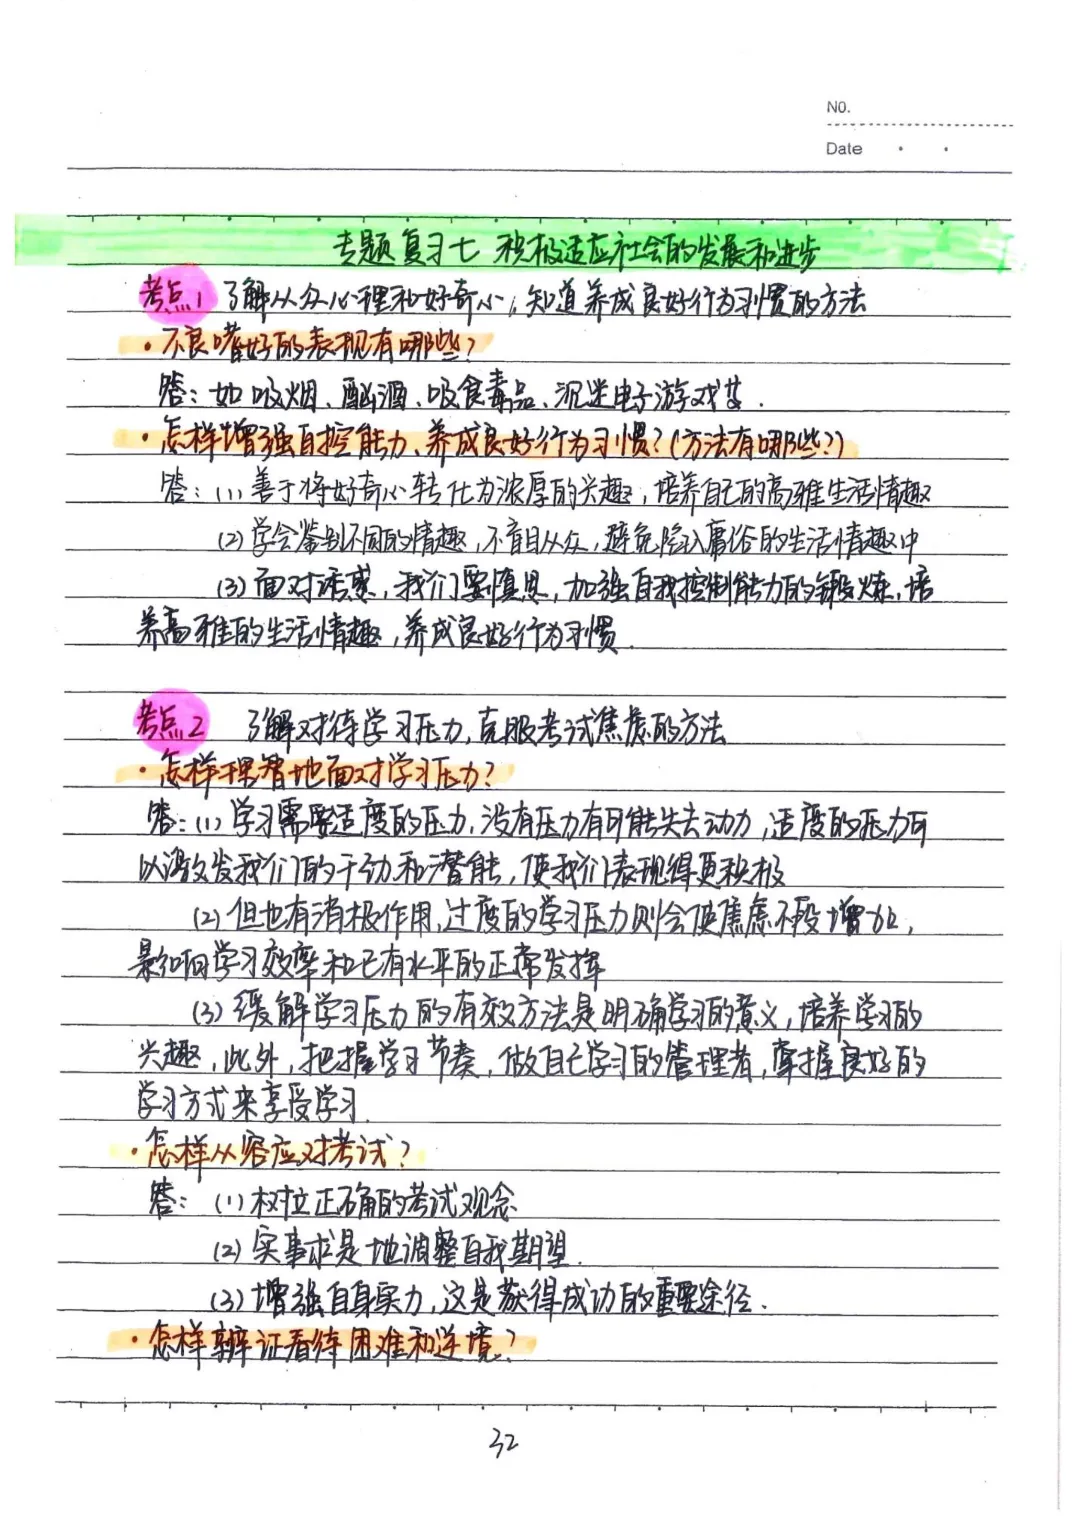 NO.
Date
专题复习七 积极适应社会的发展和进步
考点1 了解从众心理和好奇心,知道养成良好行为习惯的方法
·不良嗜好的表现有哪些?
答:如吸烟、酗酒、吸食毒品、沉迷电子游戏等.
·怎样增强自控能力、养成良好行为习惯?(方法有哪些?)
答:(1)善于将好奇心转化为浓厚的兴趣,培养自己的高雅生活情趣
(2)学会鉴别不同的情趣,不盲目从众,避免陷入庸俗的生活情趣中
(3)面对诱惑,我们要慎思,加强自我控制能力的锻炼,培
养高雅的生活情趣,养成良好行为习惯.
考点2 了解对待学习压力,克服考试焦虑的方法
·怎样理智地面对学习压力?
答:(1)学习需要适度的压力,没有压力有可能失去动力,适度的压力可
以激发我们的干劲和潜能,使我们表现得更积极
(2)但也有消极作用,过度的学习压力则会使焦虑不段增加,
影响学习效率和已有水平的正常发挥
(3)缓解学习压力的有效方法是明确学习的意义,培养学习的
兴趣,此外,把握学习节奏,做自己学习的管理者,掌握良好的
学习方式来享受学习.
·怎样从容应对考试?
答:(1)树立正确的考试观念
(2)实事求是地调整自我期望.
(3)增强自身实力,这是获得成功的重要途径.
·怎样辨证看待困难和逆境?
32